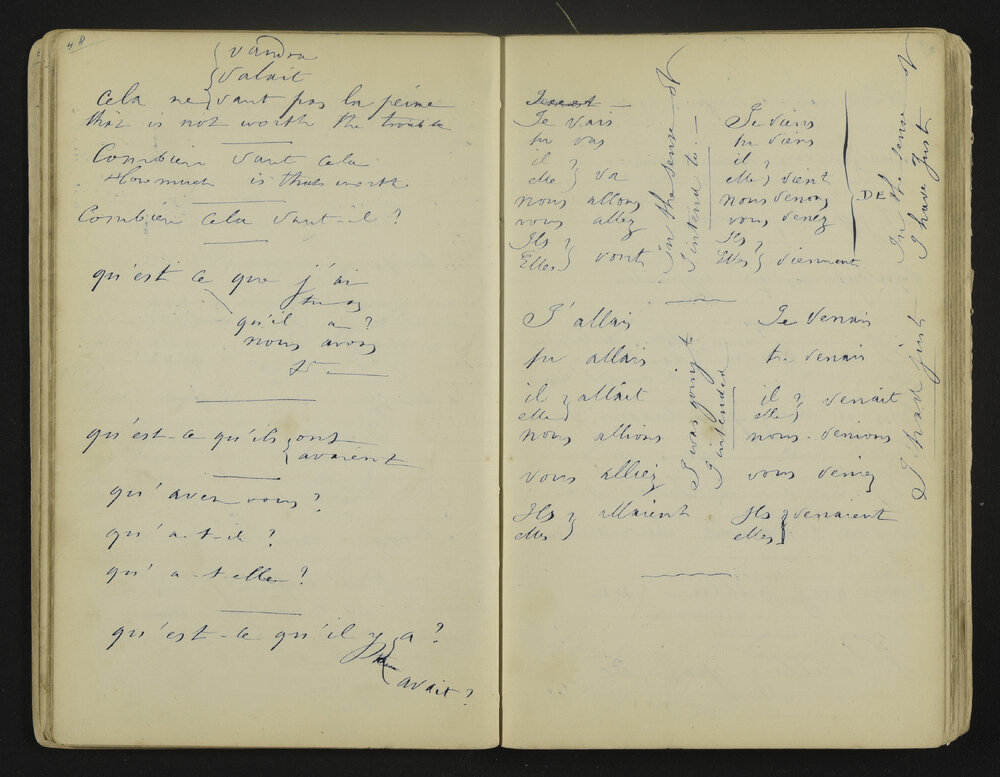 48
vandra
valait
Cela ne vaut pas la peine
that is not worth the trouble
Combien vaut cela
How much is that worth
Combien cela vaut-il ?
qu'est ce que j'ai
tu as
qu'il a ?
nous avons
qu'est-ce qu'ils ont
avaient
qu'avez vous ?
qu'a-t-il ?
qu'a-t-elle ?
qu'est-ce qu'il y a ?
avait ?
Je vais
tu vas
il
elle va
nous allons
vous allez
Ils
Elles vont
in the sense of
I intend to -
Je viens
tu viens
il
elle vient
nous venons
vous venez
Ils
Elles viennent
DE
In the sense of
I have just
J'allais
tu allais
il allait
elle
nous allions
vous alliez
Ils allaient
elles
I was going to
I intended
Je venais
tu venais
il venait
elle
nous venions
vous veniez
Ils venaient
elles
I had just